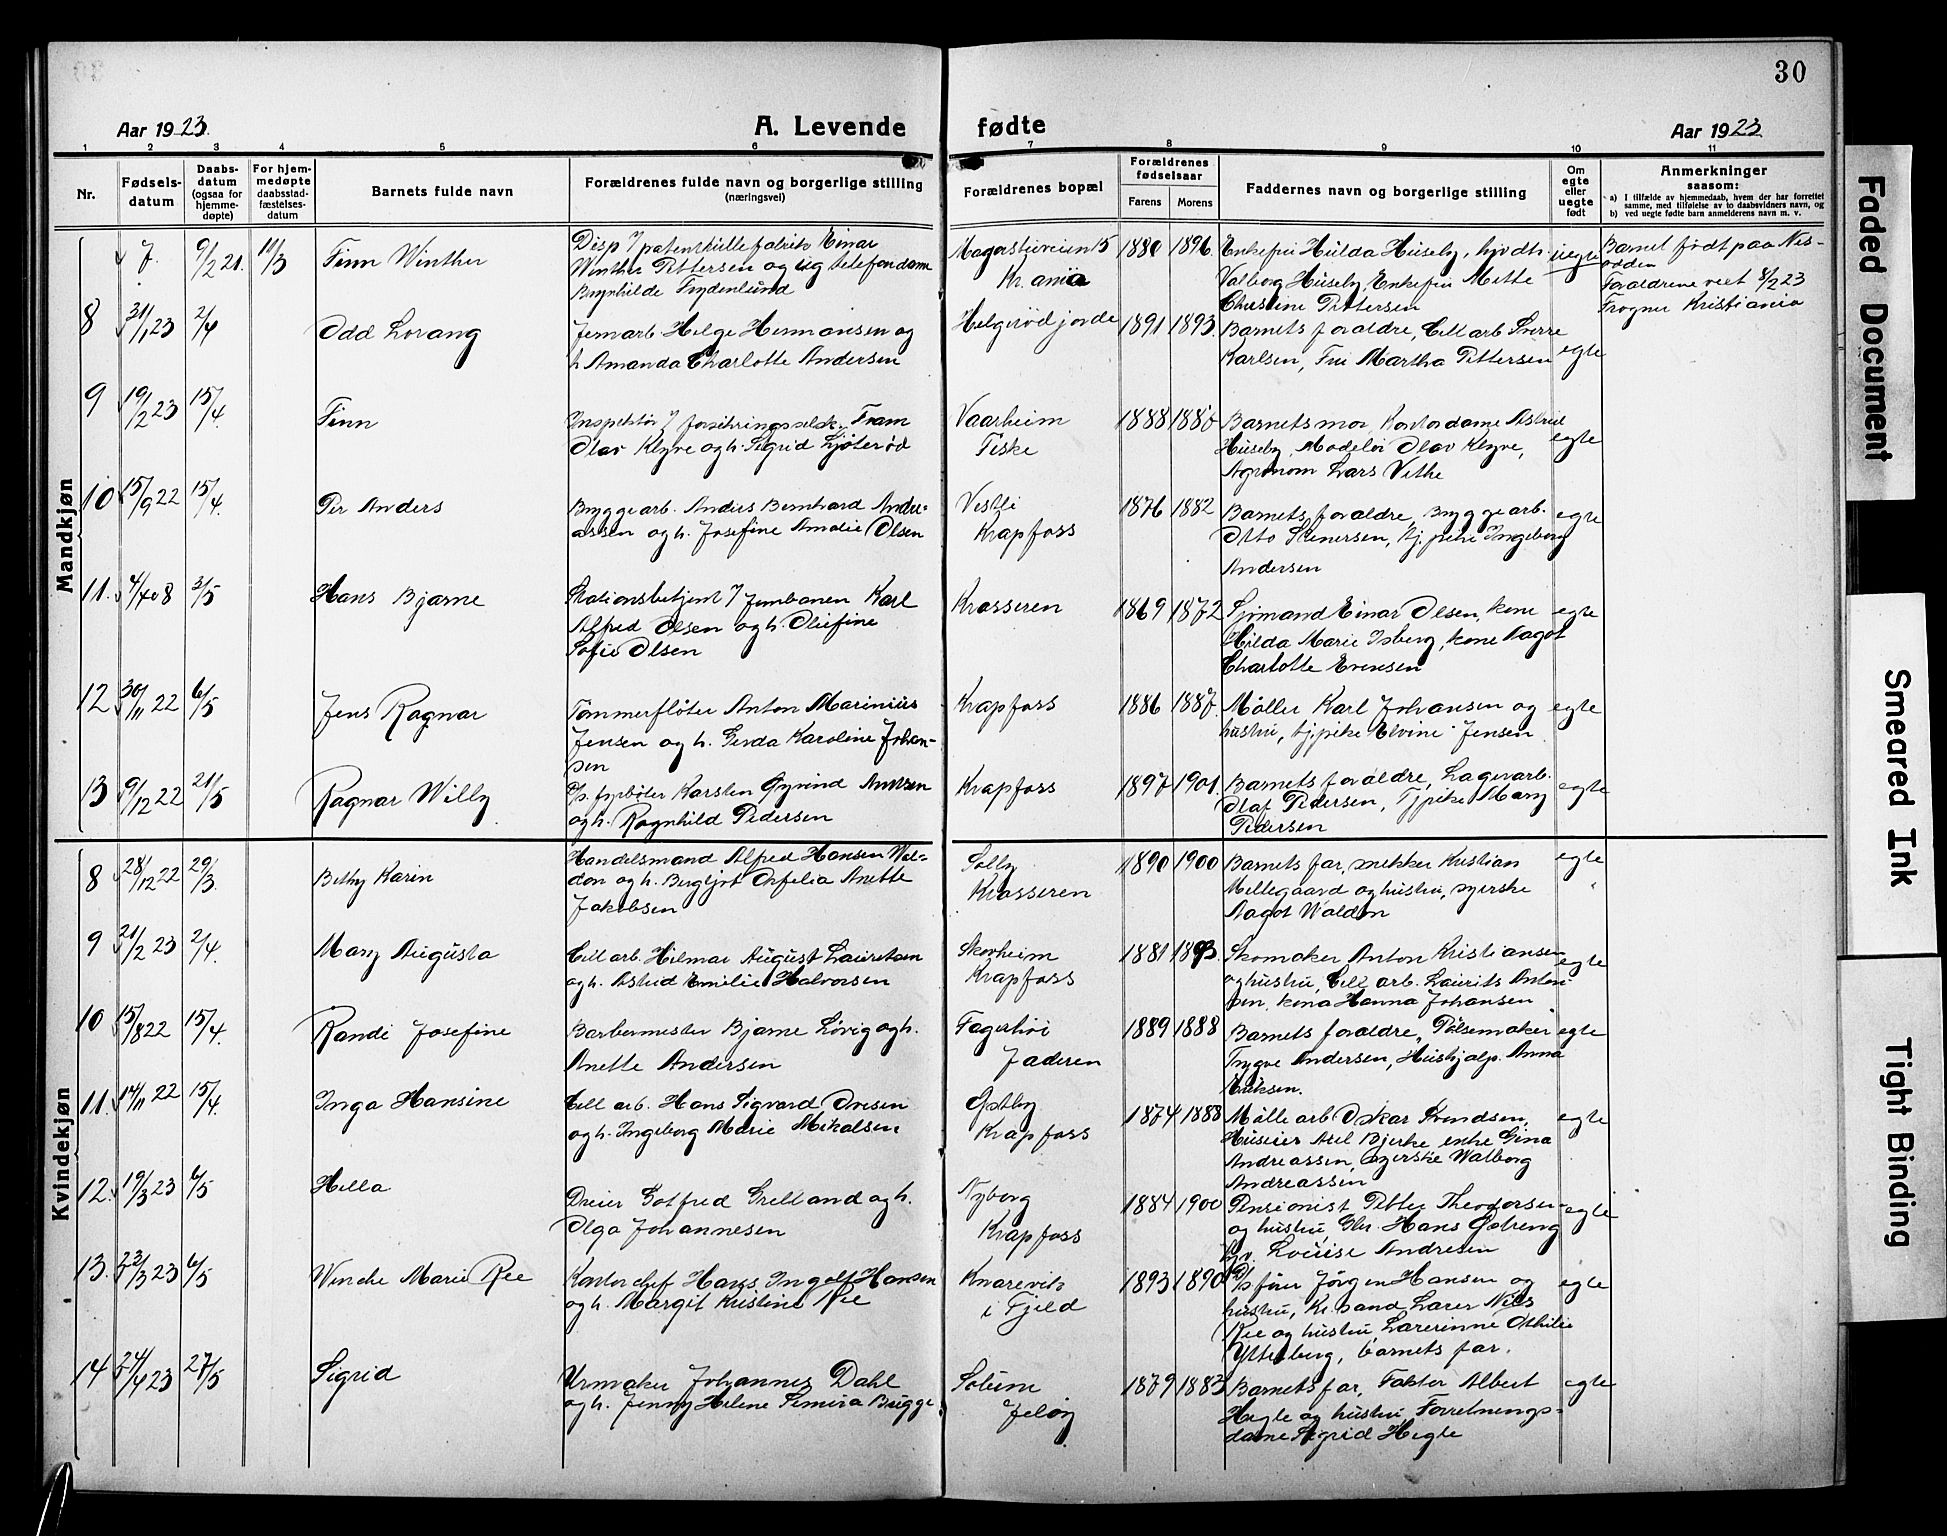 30
Aar 1923. A. Levende fødte Aar 1923
1 2 3 4 5 6 7 8 9 10 11
Nr.
Fødsels-
datum
Daabs-
datum
(ogsaa for
hjemme-
døpte)
For hjem-
medøpte
daabsstad-
fæstelses-
datum
Barnets fulde navn
Forældrenes fulde navn og borgerlige stilling
(næringsvei)
Forældrenes bopæl
Forældrenes
fødselsaar
Farens Morens
Faddernes navn og borgerlige stilling
Om
egte
eller
uegte
født
Anmerkninger
saasom:
a) I tilfælde av hjemmedaab, hvem der har forrettet
samme, med tilføielse av to daabsvidners navn, og
b) ved uegte fødte barn anmelderens navn m. v.
Mandkjøn
7. 9/2 21. 11/3 Finn Winther
Disp. patentkillefabrik Einar
Winther Pettersen og ug telefondame
Brynhilde Frydenlund
Kr.ania
1880 1896
Enkefru Hulda Huseby,
Valborg Huseby, Enkefru Mette
Christine Pettersen
uegte
Barnet født paa Nes-
odden
Forældrene viet 8/2 23
Frogner Kristiania
8 31/1 23 2/4 Odd Lorang
Jernarb Helge Hermansen og
h Amanda Charlotte Andersen
Helgerødjorde
1891 1893.
Barnets forældre, Cell arb Sverre
Karlsen, Fru Martha Pettersen
egte
9 19/2 23 15/4. Finn
Inspektør i forsikringsselsk. Fram
Olav Klyve og h. Sigrid Ljøterød
Vaarheim
Tiske
1888 1880
Barnets mor, Kontordame Astrid
Huseby, Modelør Olav Klyve,
Agronom Lars Vethe
egte
10 15/9 22 15/4. Per Anders
Bryggearb. Anders Bernhard Andre-
assen og h. Josefine Amalie Olsen
Vestli
Krapfoss
1876 1882
Barnets forældre, Bryggearb.
Otto Stenersen, tj.pike Ingeborg
Andersen
egte
11. 4/4 08 3/5 Hans Bjarne
Stationsbetjent i Jernbanen Karl
Alfred Olsen og h. Olufine
Sofie Olsen
Krosseren
1869 1872
Sjømand Einar Olsen, kone
Hilda Marie Isberg, kone Aagot
Charlotte Evensen
egte
12 30/11 22 6/5 Jens Ragnar
Tømmerfløter Anton Marinius
Jensen og h. Gerda Karoline Johan-
sen
Krapfoss
1886 1887.
Møller Karl Johansen og
hustru, tjpike Elvine Jensen
egte
13 9/12 22 21/5 Ragnar Willy
fyrbøter Karsten Øyvind Arntzen
og h. Ragnhild Pedersen
Krapfoss
1897 1901.
Barnets forældre, Lagerarb.
Olaf Pedersen, Tjpike Mary
Pedersen
egte
Kvindekjøn
8 28/12 22 29/3. Bethy Karin
Handelsmand Alfred Hansen Wal-
don og h. Bergljot Ofelia Anette
Jakobsen
Solby
Krosseren
1890 1900
Barnets far, snekker Kristian
Mellegaard og hustru, syerske
Aagot Waldon
egte
9 21/2 23 2/4. Mary Augusta
Cell arb. Hilmar August Lauritsen
og h. Astrid Emilie Halvorsen
Skovheim
Krapfoss
1881 1893.
Skomaker Anton Kristiansen
og hustru, Cell arb. Laurits Anton-
sen, kona Hanna Johansen
egte
10 15/8 22 15/4. Randi Josefine
Barbermester Bjarne Løvig og h.
Anette Andersen
Fagerli
Jaderen
1889 1888
Barnets forældre, Pølsemaker
Trygve Andersen, Hushjælp. Anna
Eriksen.
egte
11. 14/11 22 15/4. Inga Hansine
Cell arb. Hans Sigvard Ovesen
og h. Ingeborg Marie Mikalsen
Østby
Krapfoss
1874 1888
Mølle arb Oskar Svendsen,
Huseier Axel Bjerke, enke Gina
Andreassen, syerske Walborg
Andreassen
egte
12. 19/3 23 6/5 Hella
Dreier Gotfred Grelland og h.
Olga Johannesen
Nyborg
Krapfoss
1884 1900
Pensionist Petter Theodorsen
og hustru, Hans Østreng
Louise Andresen
egte
13. 23/3 23 6/5 Wenche Marie Ree
Kontorchef Hans Ingolf Hansen
og h. Margit Kristine Ree
Knarevik
i Fjeld
1893 1890
D/s fører Jørgen Hansen og
hustru, Kr.sand Lærer Nils
Ree og hustru, Lærerinne Othilie
Ytterberg, barnets far.
egte
14 24/4 23 27/5 Sigrid
Urmaker Johannes Dahl
og h. Jenny Helene Elmira Brügge.
Solum
Jeløy
1879 1883
Barnets far, Faktor Albert
Hegle og hustru Forretnings-
dame Sigrid Hegle
egte
Faded Document
Smeared Ink
Tight Binding